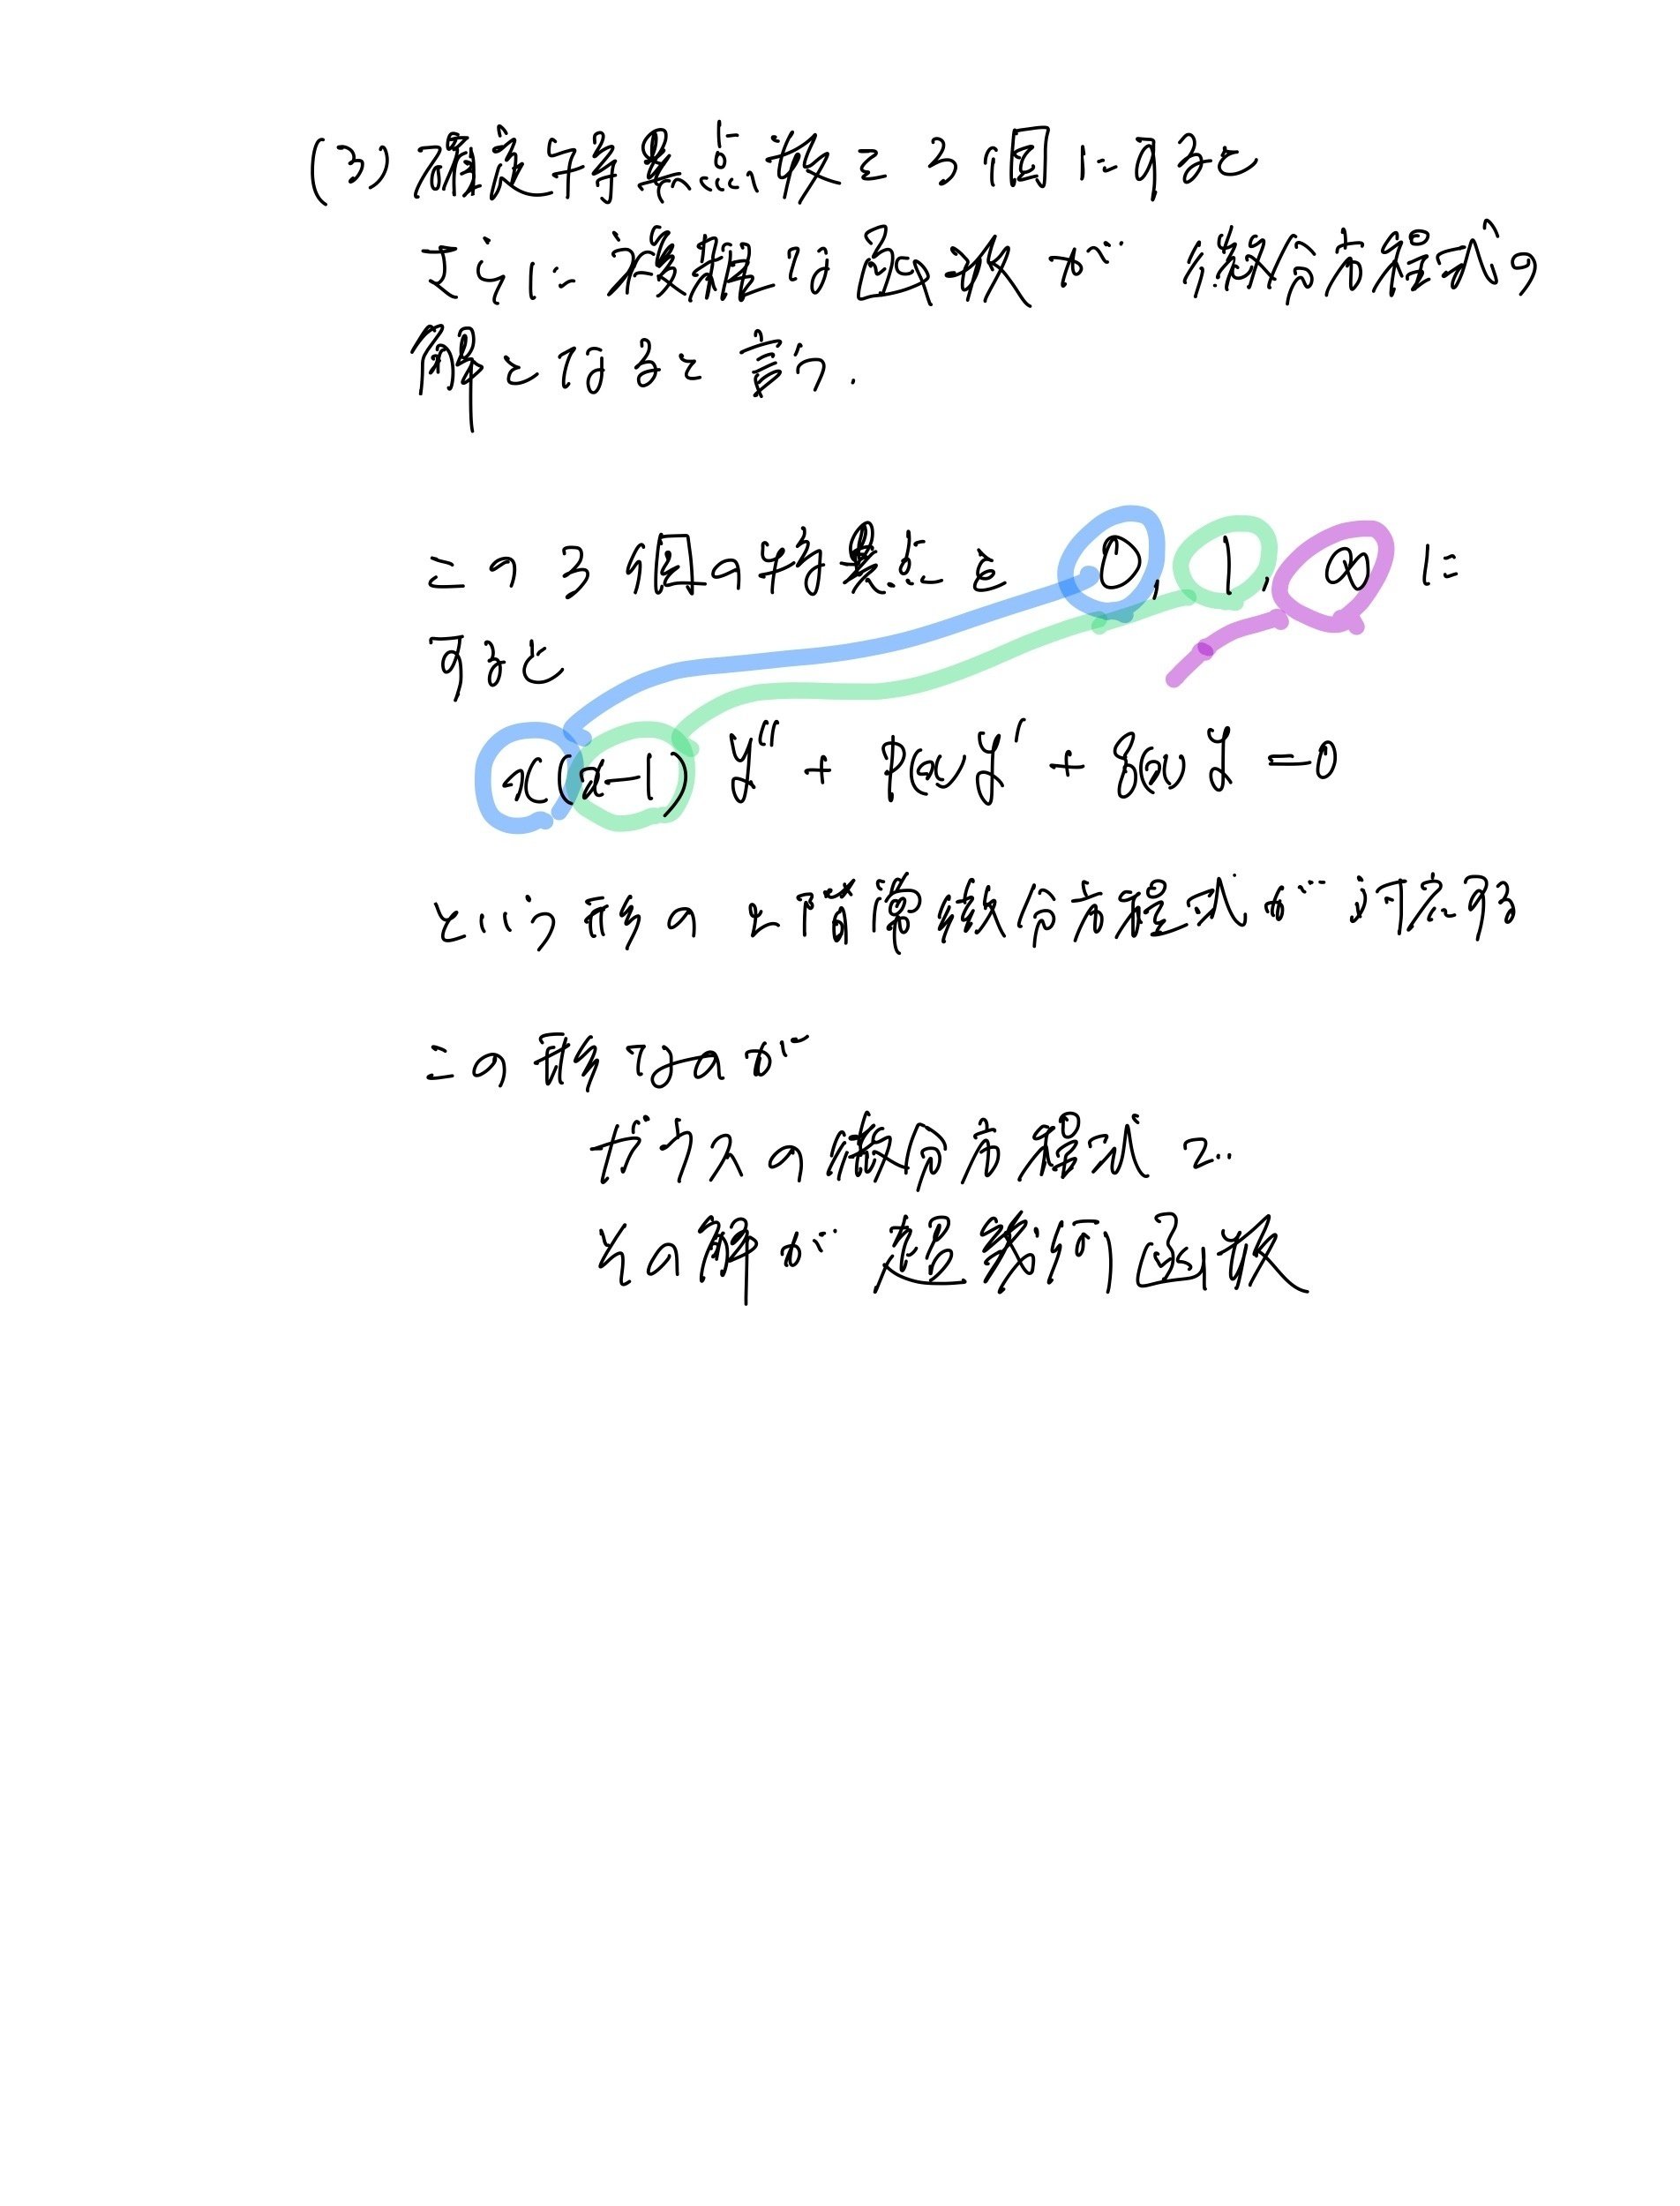 (3) 確定特異点数を3個にすると
さらに複雑な函数が 微分方程式の
解となると言う.
この3個の特異点を 0, 1, ∞ に
すると
x(x-1) y″ + p(x) y′ + q(x) y = 0
という形の2階常微分方程式が対応する
この形なのが
ガウスの微分方程式で
その解が 超幾何函数